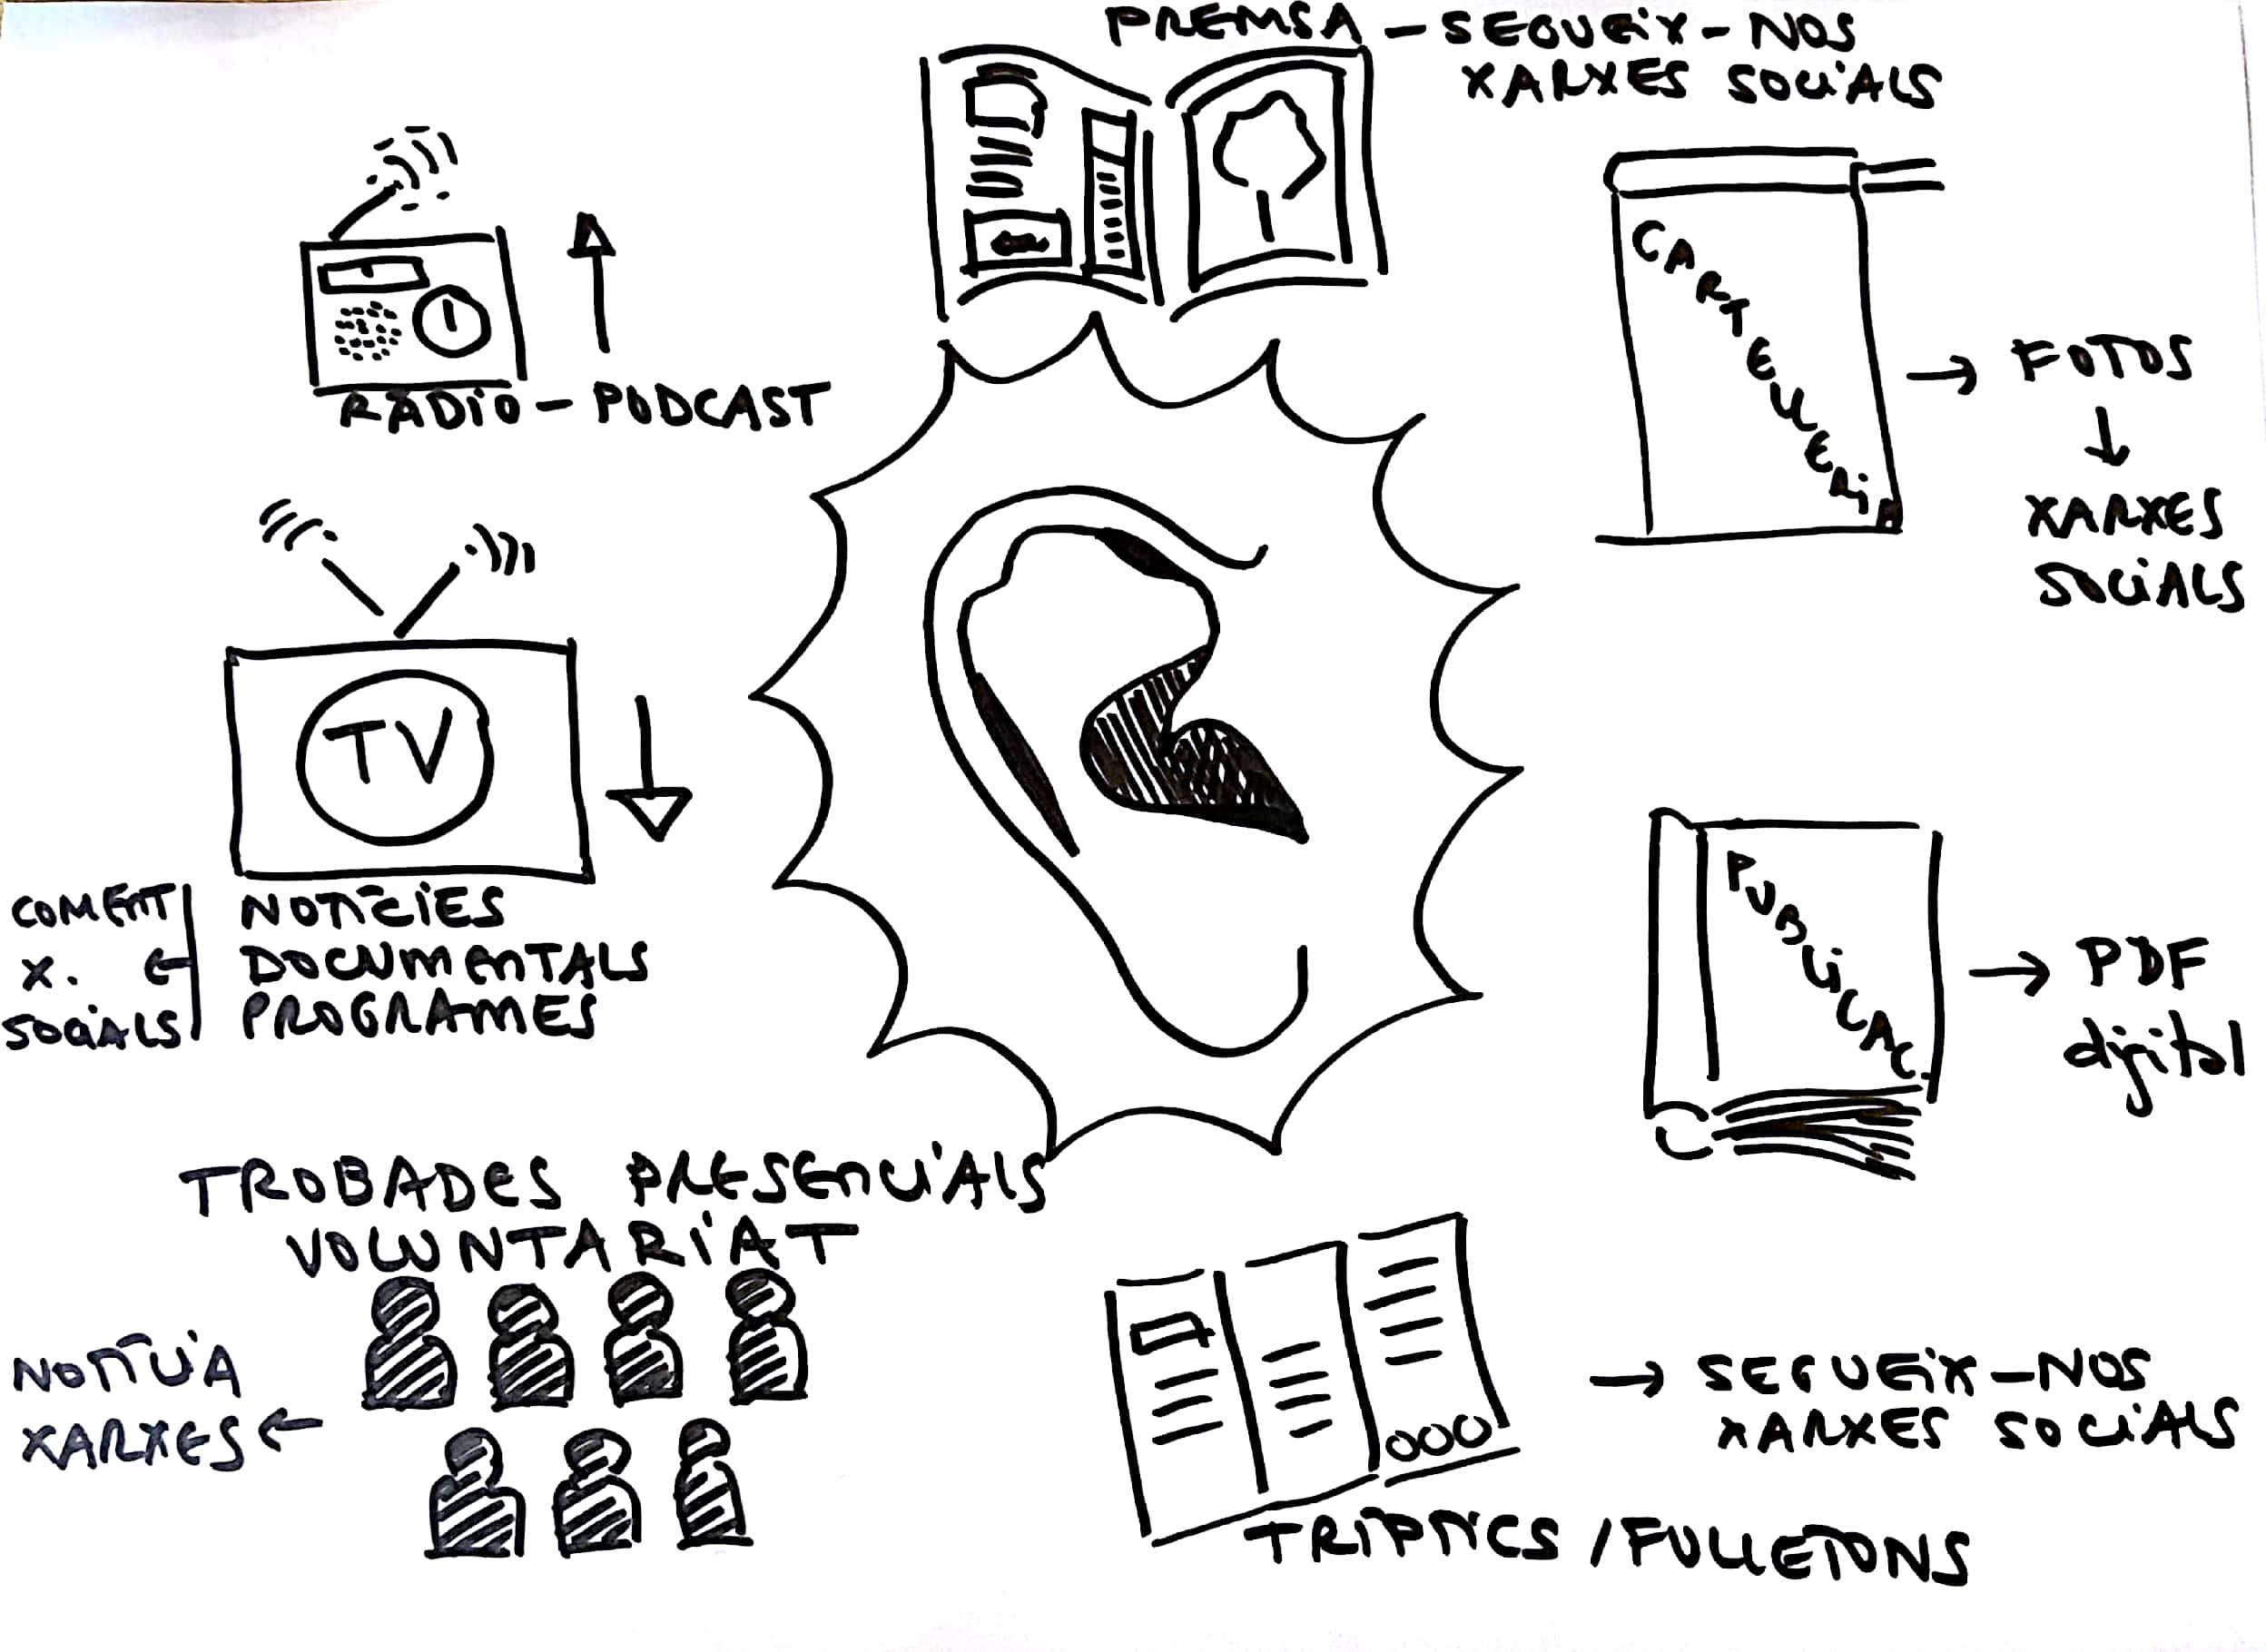 PREMSA - SEGUEiX - NOS
XARXES SOCiALS
RÀDiO - PODCAST
CARTELLERiA
→ FOTOS
↓
XARXES
SOCiALS
TV
NOTÍCiES
DOCUMENTALS
PROGRAMES
COMENT
X. ←
SOCiALS
PUBLiCAC.
→ PDF
digital
TROBADES PRESENCiALS
VOLUNTARiAT
NOTÍCiA
XARXES ←
→ SEGUEiX - NOS
XARXES SOCiALS
TRÍPTiCS / FULLETONS